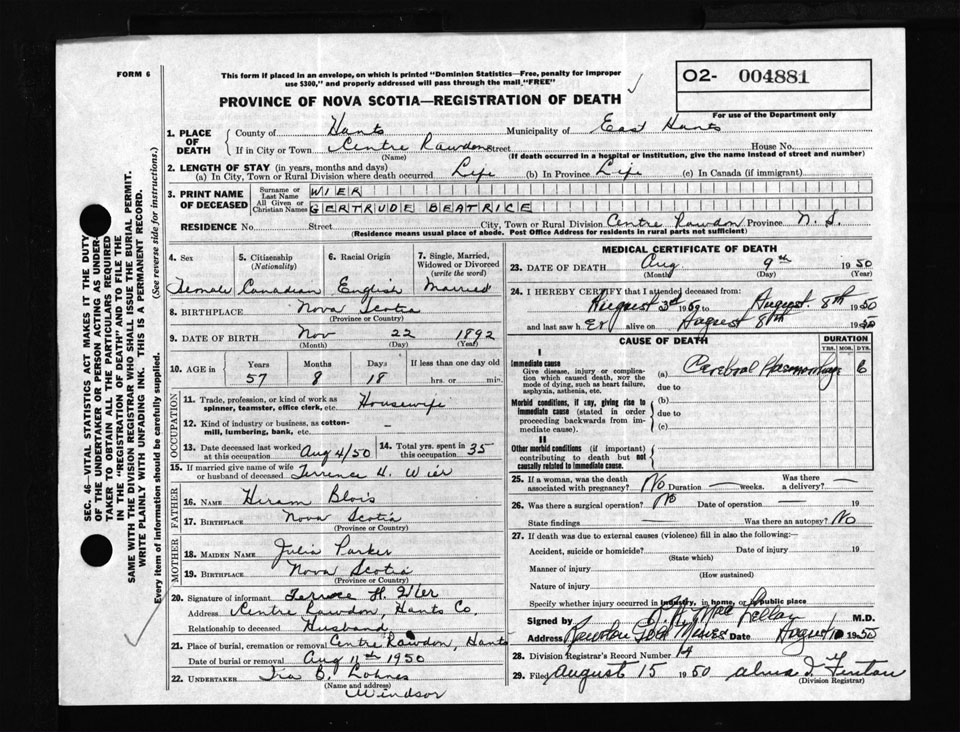 FORM 6
This form if placed in an envelope, on which is printed "Dominion Statistics—Free, penalty for improper
use $300," and properly addressed will pass through the mail "FREE"
O2- 004881
For use of the Department only
PROVINCE OF NOVA SCOTIA—REGISTRATION OF DEATH
SEC. 46—VITAL STATISTICS ACT MAKES IT THE DUTY
OF THE UNDERTAKER OR PERSON ACTING AS UNDER-
TAKER TO OBTAIN ALL THE PARTICULARS REQUIRED
IN THE "REGISTRATION OF DEATH" AND TO FILE THE
SAME WITH THE DIVISION REGISTRAR WHO SHALL ISSUE THE BURIAL PERMIT.
WRITE PLAINLY WITH UNFADING INK. THIS IS A PERMANENT RECORD.
Every item of information should be carefully supplied. (See reverse side for instructions.)
1. PLACE OF DEATH County of Hants Municipality of East Hants
If in City or Town Centre Rawdon Street House No.
(Name) (If death occurred in a hospital or institution, give the name instead of street and number)
2. LENGTH OF STAY (in years, months and days)
(a) In City, Town or Rural Division where death occurred Life (b) In Province Life (c) In Canada (if immigrant)
3. PRINT NAME OF DECEASED Surname or Last Name WIER
All Given or Christian Names GERTRUDE BEATRICE
RESIDENCE No. Street City, Town or Rural Division Centre Rawdon Province N. S.
(Residence means usual place of abode. Post Office Address for residents in rural parts not sufficient)
4. Sex 5. Citizenship (Nationality) 6. Racial Origin 7. Single, Married, Widowed or Divorced (write the word)
Female Canadian English Married
8. BIRTHPLACE Nova Scotia
(Province or Country)
9. DATE OF BIRTH Nov 22 1892
(Month) (Day) (Year)
10. AGE in Years Months Days If less than one day old
57 8 18 hrs. or min.
OCCUPATION
11. Trade, profession, or kind of work as spinner, teamster, office clerk, etc. Housewife
12. Kind of industry or business, as cotton-mill, lumbering, bank, etc.
13. Date deceased last worked at this occupation Aug 4/50 14. Total yrs. spent in 35
15. If married give name of wife or husband of deceased Terrence H. Wier
FATHER
16. NAME Hiram Blois
17. BIRTHPLACE Nova Scotia
(Province or Country)
MOTHER
18. MAIDEN NAME Julia Parker
19. BIRTHPLACE Nova Scotia
(Province or Country)
20. Signature of informant H. Wier
Address Centre Rawdon, Hants Co.
Relationship to deceased Husband
21. Place of burial, cremation or removal Centre Rawdon, Hants
Date of burial or removal Aug 11th 1950
22. UNDERTAKER Ira B. Lohnes
(Name and address)
Windsor
MEDICAL CERTIFICATE OF DEATH
23. DATE OF DEATH Aug 9th 1950
(Month) (Day) (Year)
24. I HEREBY CERTIFY that I attended deceased from:
August 3rd 1950 to August. 8th 1950
and last saw her alive on August 8th 1950
CAUSE OF DEATH DURATION
YRS. MOS. DYS.
I
Immediate cause
Give disease, injury or complication which caused death, not the mode of dying, such as heart failure, asphyxia, asthenia, etc.
(a) Cerebral Haemorrhage 6
due to
Morbid conditions, if any, giving rise to immediate cause (stated in order proceeding backwards from immediate cause).
(b)
due to
(c)
II
Other morbid conditions (if important) contributing to death but not causally related to immediate cause.
25. If a woman, was the death associated with pregnancy? No Duration — weeks. Was there a delivery? —
26. Was there a surgical operation? No Date of operation — 19
State findings — Was there an autopsy? No
27. If death was due to external causes (violence) fill in also the following:—
Accident, suicide or homicide? Date of injury 19
(State which)
Manner of injury
(How sustained)
Nature of injury
Specify whether injury occurred in industry, in home, or in public place
Signed by M.D.
Address Rawdon Gold Mines Date August 10 1950
28. Division Registrar's Record Number 14
29. Filed August 15 1950 Fenton
(Division Registrar)